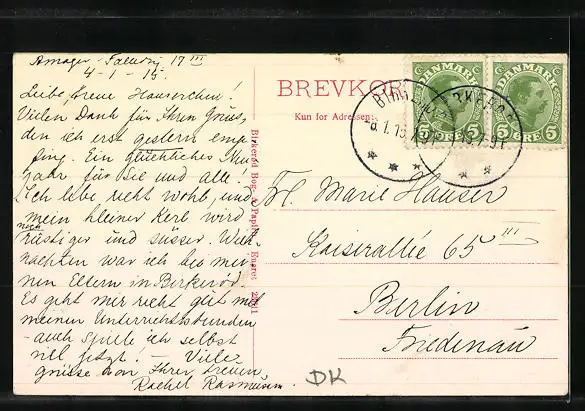 Amager-Fælledvej 17 III
4-1-15.
Liebe, treue Hauserchen!
Vielen Dank für Ihren Gruss,
den ich erst gestern emp
fing. Ein glückliches Neu
jahr für Sie und alle!
Ich lebe recht wohl, und
mein kleiner Kerl wird
noch
rüstiger und süsser. Weih-
nachten war ich bei mei-
nen Eltern in Birkerød.
Es geht mir recht gut mit
meinen Unterrichtsstunden
- auch spiele ich selbst
viel jetzt! - Viele
grüsse von Ihrer treuen
Rachel Rasmussen.
BREVKORT
Kun for Adressen:
DANMARK
5 ØRE 5
DANMARK
5 ØRE 5
BIRKERØD
Birkerød Bog- & Papirh. Eneret
Frl. Marie Hauser
Kaiserallée 65 III
Berlin
Friedenau
DK